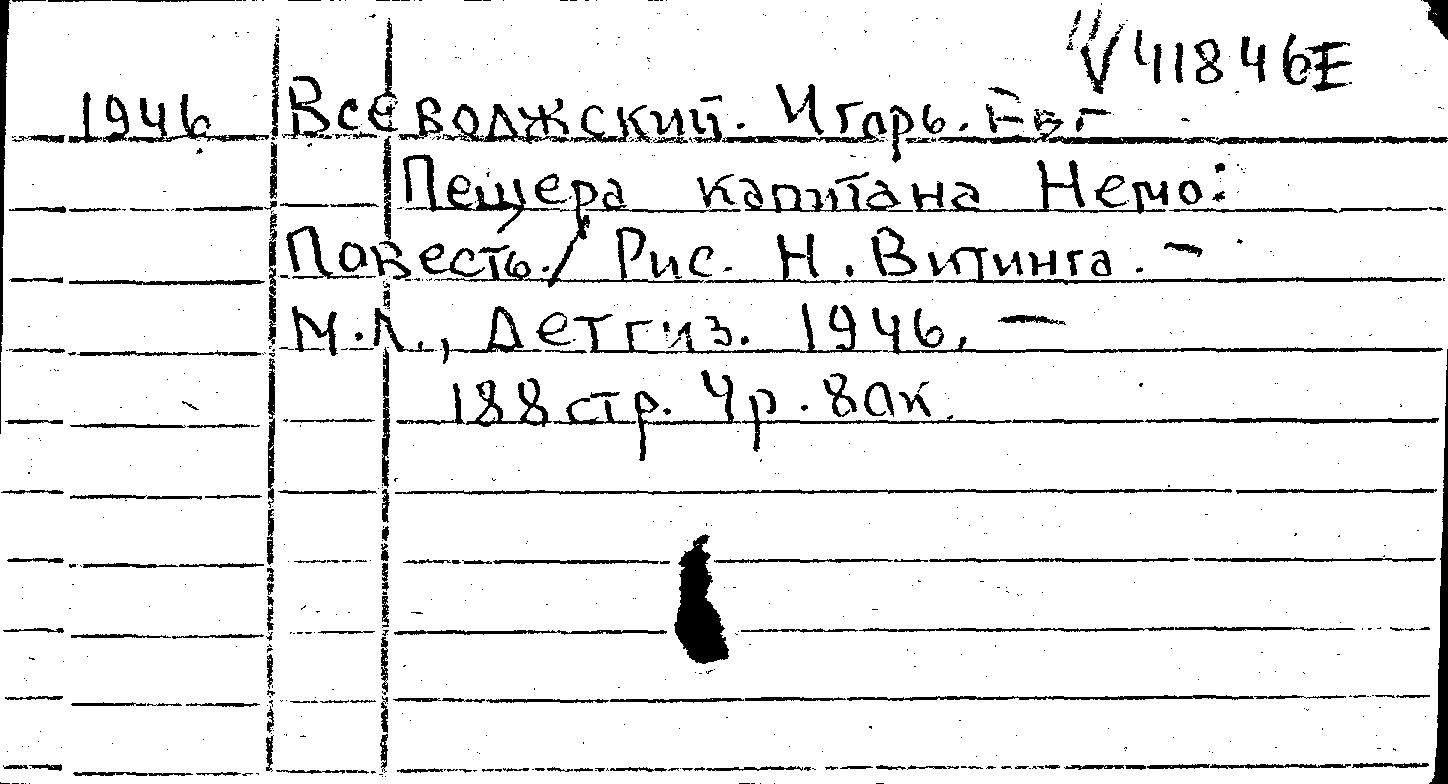 V41846E
1946 Всеволжский. Игорь. Евг
Пещера капитана Немо:
Повесть./ Рис. Н. Витинга. —
М.Л., Детгиз. 1946. —
188 стр. 4р. 80к.